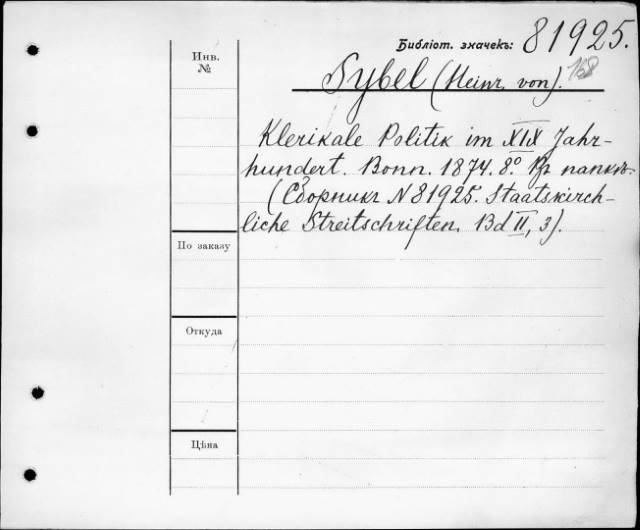 Библіот. значекъ: 81925.
Инв. №
Sybel (Heinr. von). 168
Klerikale Politik im XIX Jahr-
hundert. Bonn. 1874. 8º. Вр папкѣ.
(Сборникъ N 81925. Staatskirch-
liche Streitschriften. Bd II, 3).
По заказу
Откуда
Цѣна